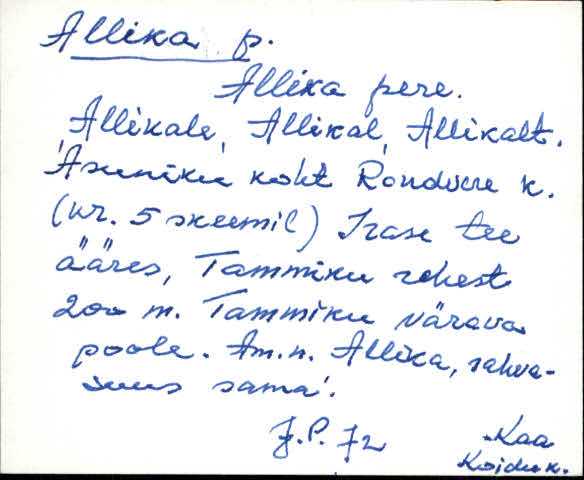 Allika p.
Allika pere.
Allikale, Allikal, Allikalt.
Asuniku koht Rondvere k.
(nr. 5 skeemil) Irase tee
ääres, Tammiku rehest
200 m. Tammiku värava
poole. Am.n. Allika, rahva-
suus sama.
J.P. 72
Kaa
Koidu k.